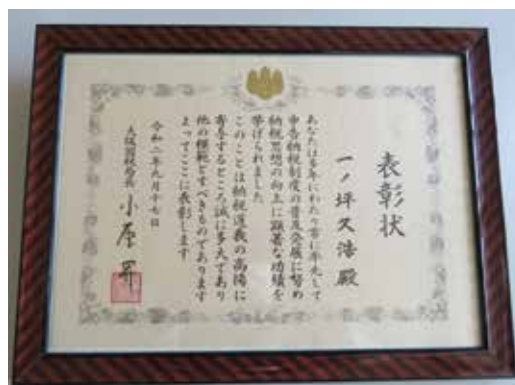 表彰状
一ノ坪久浩殿
あなたは多年にわたり常に率先して
申告納税制度の普及発展に努め
納税思想の向上に顕著な功績を
挙げられました
このことは納税道義の高揚に
寄与するところ誠に多大であり
他の模範とすべきものであります
よってここに表彰します
令和二年九月十七日
大阪国税局長 小原昇